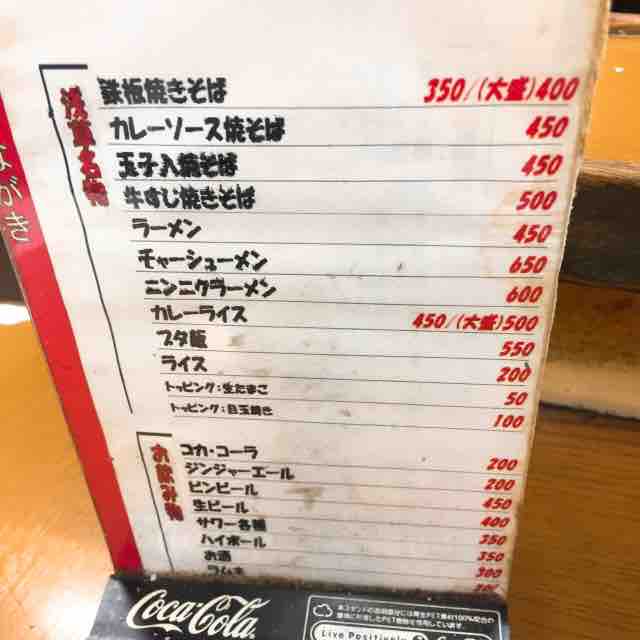 浅草名物
鉄板焼きそば 350/(大盛)400
カレーソース焼そば 450
玉子入焼そば 450
牛すじ焼きそば 500
ラーメン 450
チャーシューメン 650
ニンニクラーメン 600
カレーライス 450/(大盛)500
ブタ飯 550
ライス 200
トッピング:生たまご 50
トッピング:目玉焼き 100
お飲み物
コカ・コーラ 200
ジンジャーエール 200
ビンビール 450
生ビール 400
サワー各種 350
ハイボール 350
お酒 300
ラムネ
がき
Coca-Cola
Live Positively